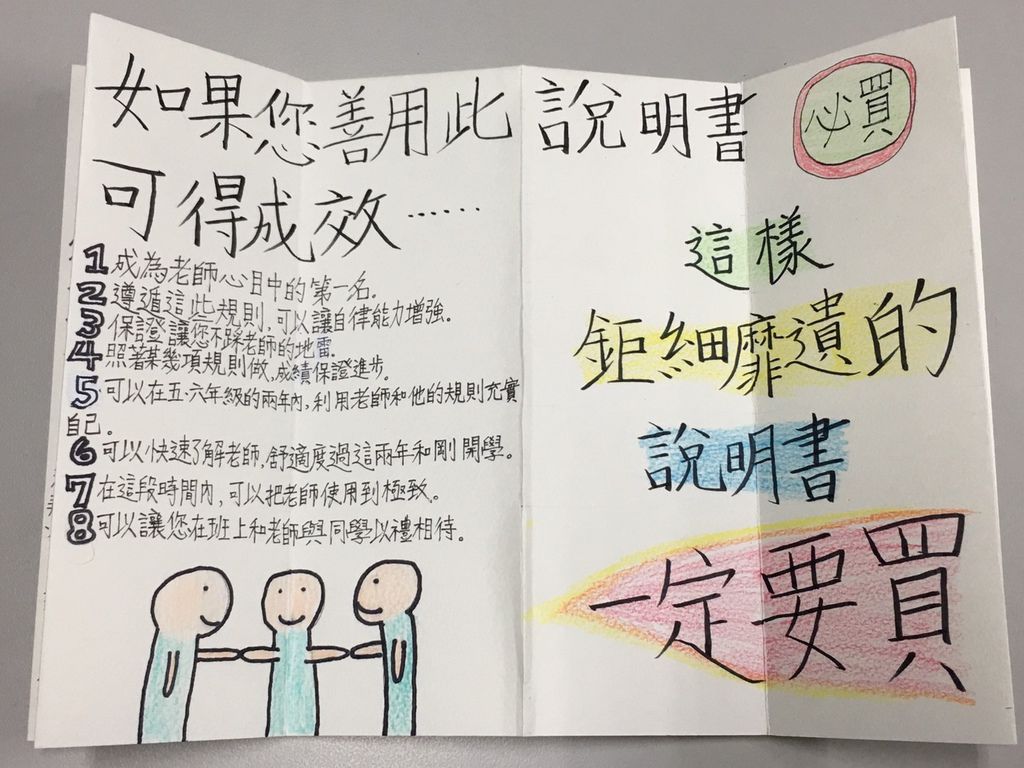 如果您善用此說明書
可得成效……
1 成為老師心目中的第一名.
2 遵遁這些規則,可以讓自律能力增強。
3 保證讓您不踩老師的地雷.
4 照著某幾項規則做,成績保證進步。
5 可以在五、六年級的兩年內,利用老師和他的規則充實
自己。
6 可以快速了解老師,舒適度過這兩年和剛開學。
7 在這段時間內,可以把老師使用到極致。
8 可以讓您在班上和老師與同學以禮相待。
必買
這樣
鉅細靡遺的
說明書
一定要買